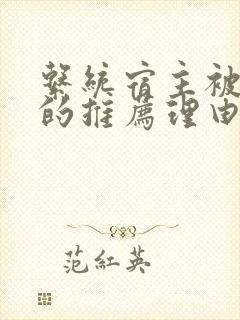 繫統宿主被
的推薦理由
范紅英